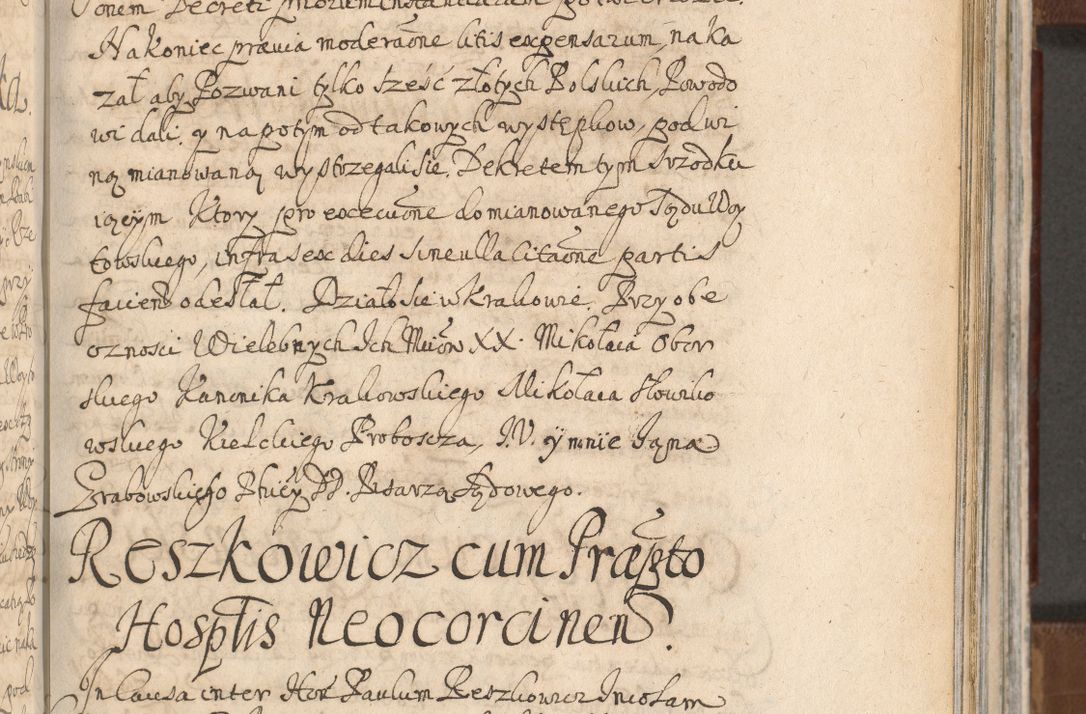 onem Decreti
Nakoniec prævia moderaõne litis expensarum, naka
zał aby Pozwani tylko sześć złotych Polskich, Powodo
wi dali. y napotym od takowych występkow, pod wi
ną mianowaną wystrzegali się. Dekretem tym srzodku
iącym Ktory pro executione do mianowanego Sądu Woy
towskiego, infra sex dies sine ulla citaõne partis
faciend odesłał. Działo się w Krakowie. Przy obe
cznosci Wielebnych Ich Mciów XX. Mikołaia Obor
skiego Kanonika Krakowskiego Mikołaia Słowiko
wskiego Kielckiego Proboscza, I.V. y mnie Jąna
Grabowskiego Pisarzą Sądowego.
Reszkowicz cum Præpto
Hosplis Neocorcinen.
In Causa inter Hon Paulum Reszkowicz Incolam